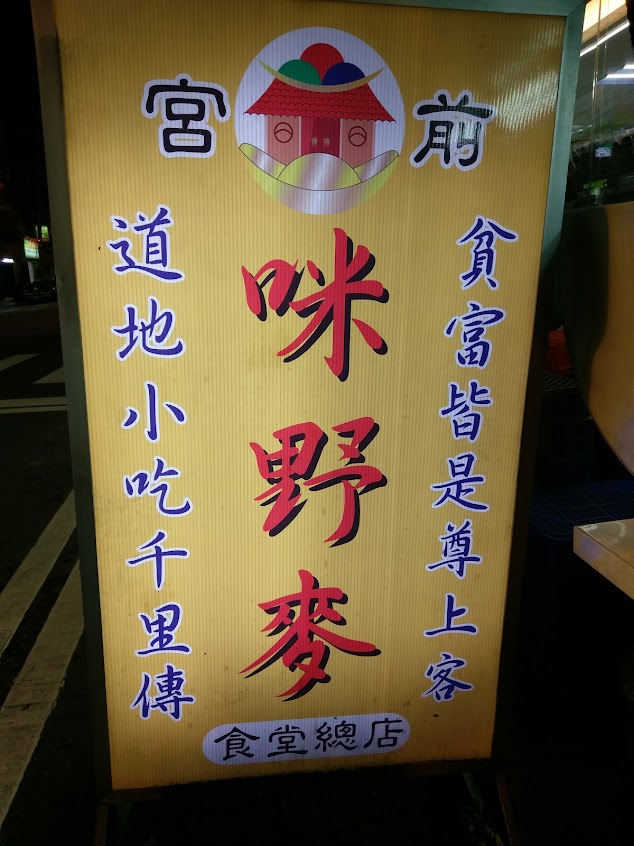 宮前
貧富皆是尊上客
咪野麥
道地小吃千里傳
食堂總店